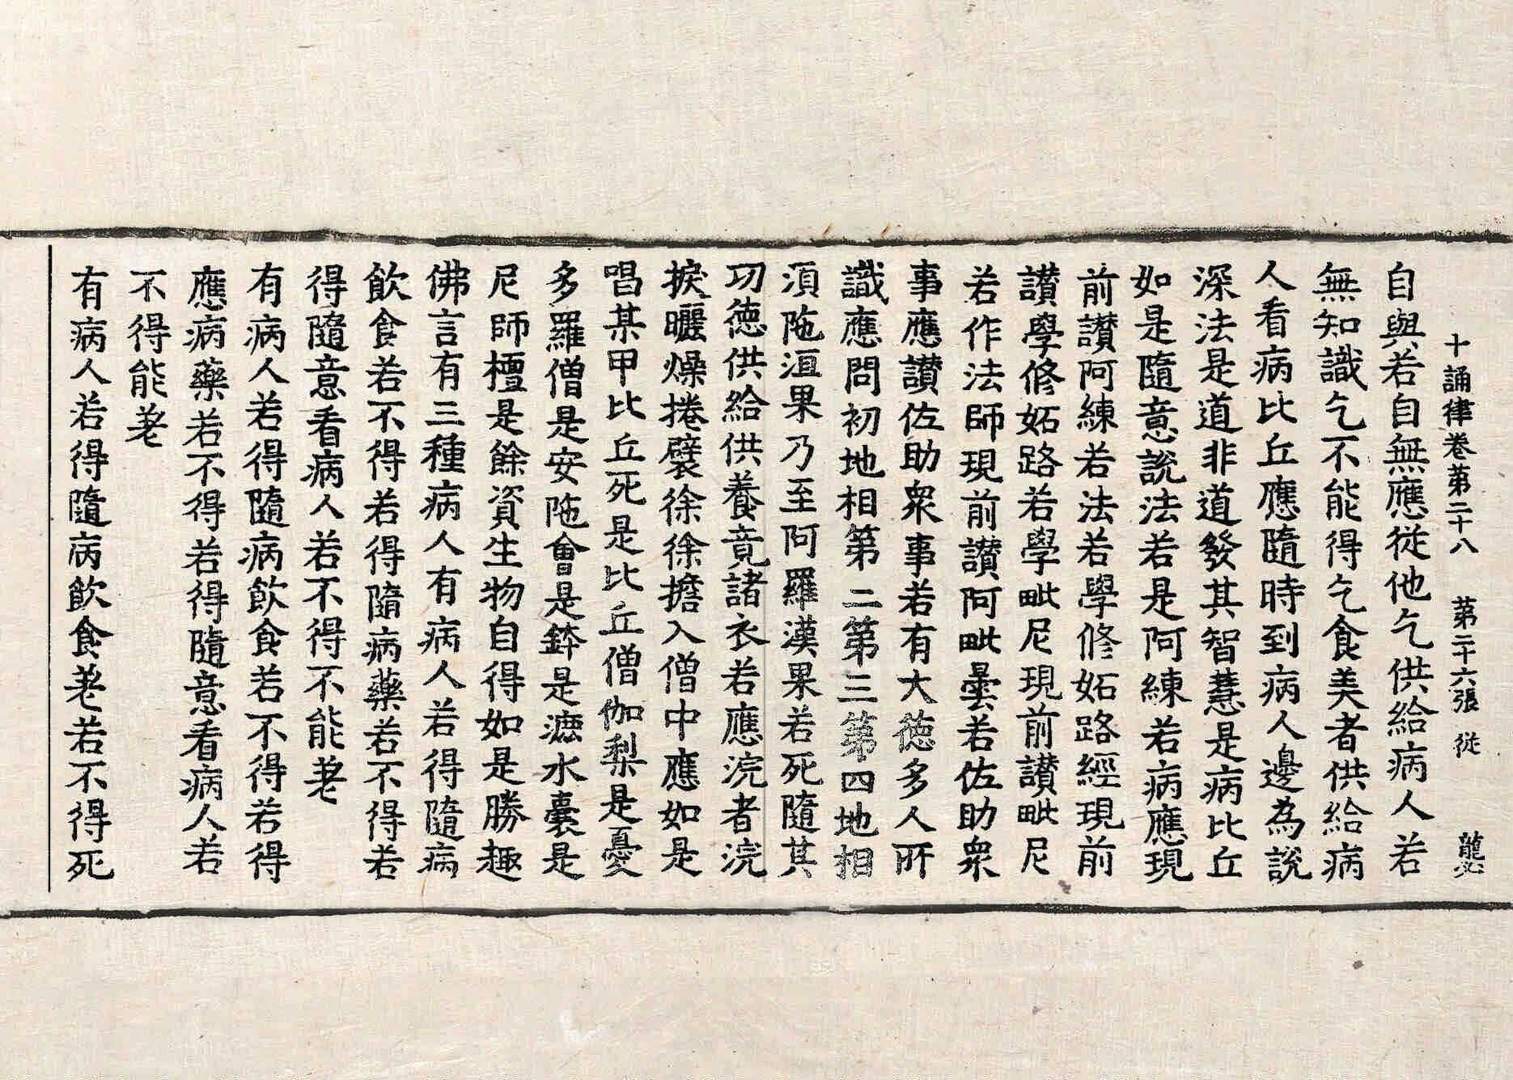 十誦律卷第二十八 第二十六張 從
自與若自無應從他乞供給病人若
無知識乞不能得乞食美者供給病
人看病比丘應隨時到病人邊為說
深法是道非道發其智慧是病比丘
如是隨意說法若是阿練若病應現
前讃阿練若法若學修妬路經現前
讃學修妬路若學毗尼現前讃毗尼
若作法師現前讃阿毗曇若佐助衆
事應讃佐助衆事若有大德多人所
識應問初地相第二第三第四地相
須陁洹果乃至阿羅漢果若死隨其
功德供給供養竟諸衣若應浣者浣
捩曬燥捲襞徐徐擔入僧中應如是
唱某甲比丘死是比丘僧伽梨是憂
多羅僧是安陁會是鉢是漉水囊是
尼師檀是餘資生物自得如是勝趣
佛言有三種病人有病人若得隨病
飲食若不得若得隨病藥若不得若
得隨意看病人若不得不能差
有病人若得隨病飲食若不得若得
應病藥若不得若得隨意看病人若
不得能差
有病人若得隨病飲食差若不得死